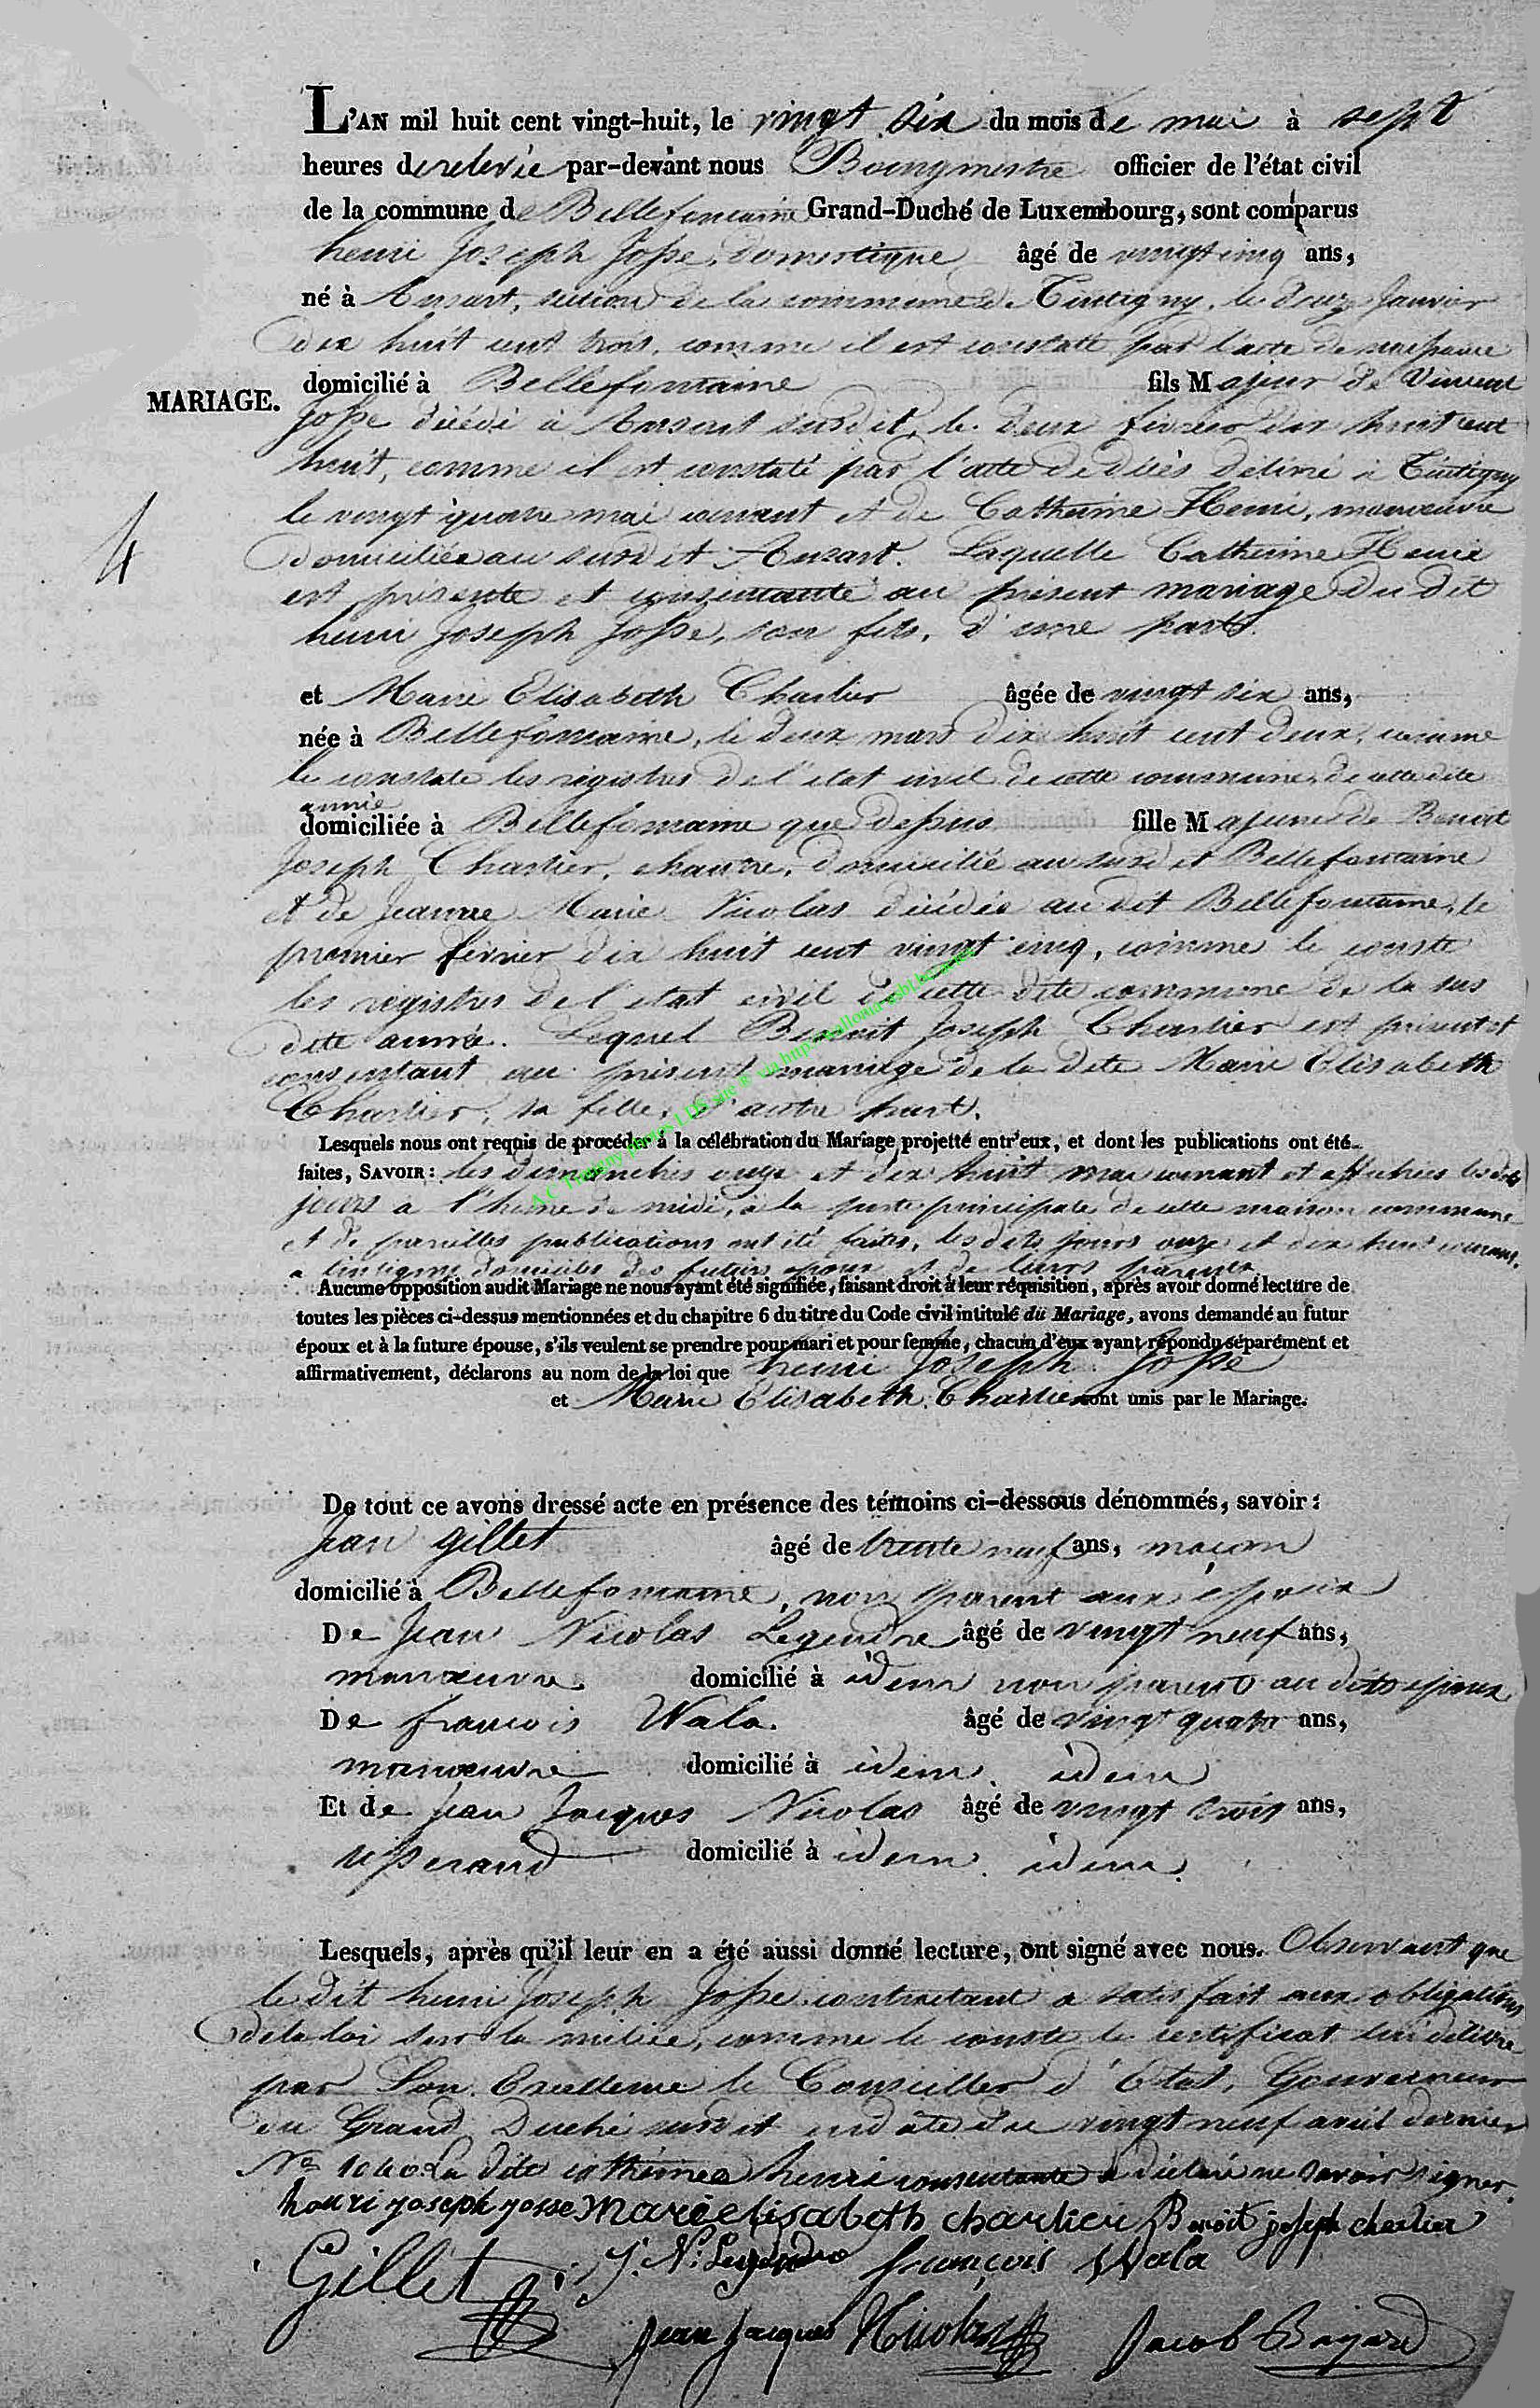 L'AN mil huit cent vingt-huit, le vingt six du mois de mai à sept
heures de relevée par-devant nous Bourgmestre officier de l'état civil
de la commune de Bellefontaine Grand-Duché de Luxembourg, sont comparus
henri Joseph Josse, domestique âgé de vingt cinq ans,
né à Ansart, section de la commune de Tintigny, le douze Janvier
dix huit cent trois, comme il est constaté par l'acte de naissance
domicilié à Bellefontaine fils Majeur de Vincent
MARIAGE.
Josse décédé à Ansart susdit, le deux février dix huit cent
huit, comme il est constaté par l'acte de décès délivré à Tintigny
le vingt quatre mai courant et de Catherine Henri, manoeuvre
4
domiciliée au susdit Ansart. Laquelle Catherine Henri
est présente et consentante au présent mariage du dit
henri Joseph Josse, son fils, d'une part.
et Marie Elisabeth Charlier âgée de vingt six ans,
née à Bellefontaine, le deux mars dix huit cent deux, comme
le constate les régistres de l'état civil de cette commune, de cette dite
année
domiciliée à Bellefontaine que dessus fille Majeure de Benoit
Joseph Charlier, chantre, domicilié au susdit Bellefontaine
et de Jeanne Marie Nicolas décédée au dit Bellefontaine, le
premier février dix huit cent vingt cinq, comme le conste
les régistres de l'état civil de cette dite commune de la sus
dite année. Lequel Benoit Joseph Charlier est présent et
consentant au présent mariage de la dite Marie Elisabeth
Charlier, sa fille, d'autre part.
A C Tintigny photos LDS via http://
Lesquels nous ont requis de procéder à la célébration du Mariage projetté entr'eux, et dont les publications ont été
faites, SAVOIR: les dimanches onze et dix huit mai courant et affichées les dits
jours à l'heure de midi, à la porte principale de cette maison commune
et de pareilles publications ont été faites, les dits jours onze et dix huit courant,
a tintigny domiciles des futurs époux et de leurs parents
Aucune opposition audit Mariage ne nous ayant été signifiée, faisant droit à leur réquisition, après avoir donné lecture de
toutes les pièces ci-dessus mentionnées et du chapitre 6 du titre du Code civil intitulé du Mariage, avons demandé au futur
époux et à la future épouse, s'ils veulent se prendre pour mari et pour femme, chacun d'eux ayant répondu séparément et
affirmativement, déclarons au nom de la loi que henri Joseph Josse
et Marie Elisabeth Charlier sont unis par le Mariage.
De tout ce avons dressé acte en présence des témoins ci-dessous dénommés, savoir:
Jean gillet âgé de trente neuf ans, maçon
domicilié à Bellefontaine, non parent aux époux
De Jean Nicolas Legendre âgé de vingt neuf ans,
manoeuvre domicilié à idem non parent au dits époux
De francois Wala. âgé de vingt quatre ans,
manoeuvre domicilié à idem. idem
Et de Jean Jacques Nicolas âgé de vingt trois ans,
tisserand domicilié à idem. idem.
Lesquels, après qu'il leur en a été aussi donné lecture, ont signé avec nous. Observant que
le dit henri Joseph Josse contractant a satisfait aux obligations
de la loi sur la milice, comme le conste le certificat lui délivré
par Son Excellence le Conseiller d'Etat, Gouverneur
du Grand Duché susdit en date du vingt neuf avril dernier
No 1040. La dite catherine henri consentante a déclaré ne savoir signer.
henri joseph josse Marie elisabeth charlier Benoit joseph charlier
Gillet J. N. Legendre françois Wala
Jean Jacques Nicolas Jacob Bayard